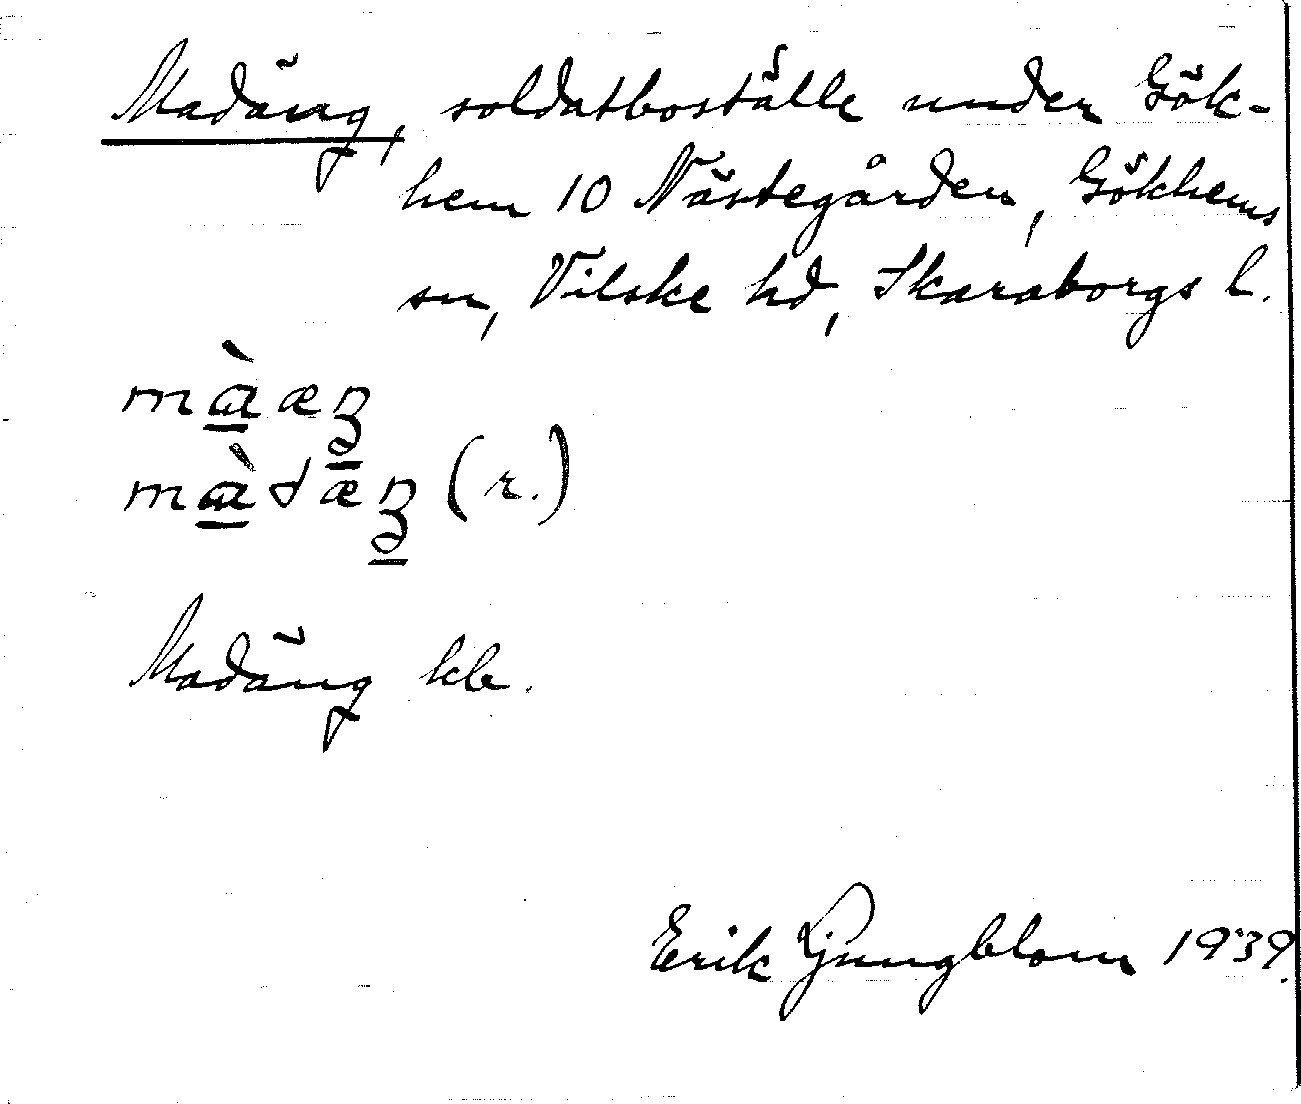 Madäng, soldatboställe under Gök-
hem 10 Nästegården, Gökhems
sn, Vilske hd, Skaraborgs l.
màæŋ
màdæŋ (r.)
Madäng kb.
Erik Ljungblom 1939.